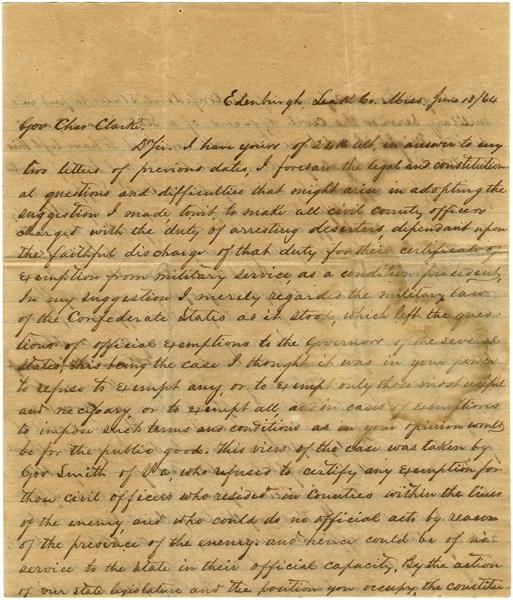 Edenburgh Leak Co. Miss. June 13/64
Gov Char Clark,
Dr Sir. I have yours of 24th ult, in answer to my
two letters of previous dates, I foresaw the legal and constitution
al questions and difficulties that might arise in adopting the
suggestion I made towit, to make all civil county officers
charged with the duty of arresting deserters, dependant upon
the faithful discharge of that duty for their certificate of
exemption from military service, as a condition precedent,
In my suggestion I merely regarded the military law
of the Confederate States as it stood, which left the ques-
tions of official exemptions to the Governors of the several
states, this being the case I thought it was in your power
to refuse to exempt any, or to exempt only those most useful
and necessary, or to exempt all, and in cases of exemptions
to impose such terms and conditions as in your opinion would
be for the public good. This view of the case was taken by
Gov Smith of Va, who refused to certify any exemption for
those civil officers who resided in Counties within the lines
of the enemy and who could do no official acts by reason
of the presence of the enemy. and hence could be of no
service to the state in their official capacity, By the action
of our state legislature and the position you occupy, the constitu-